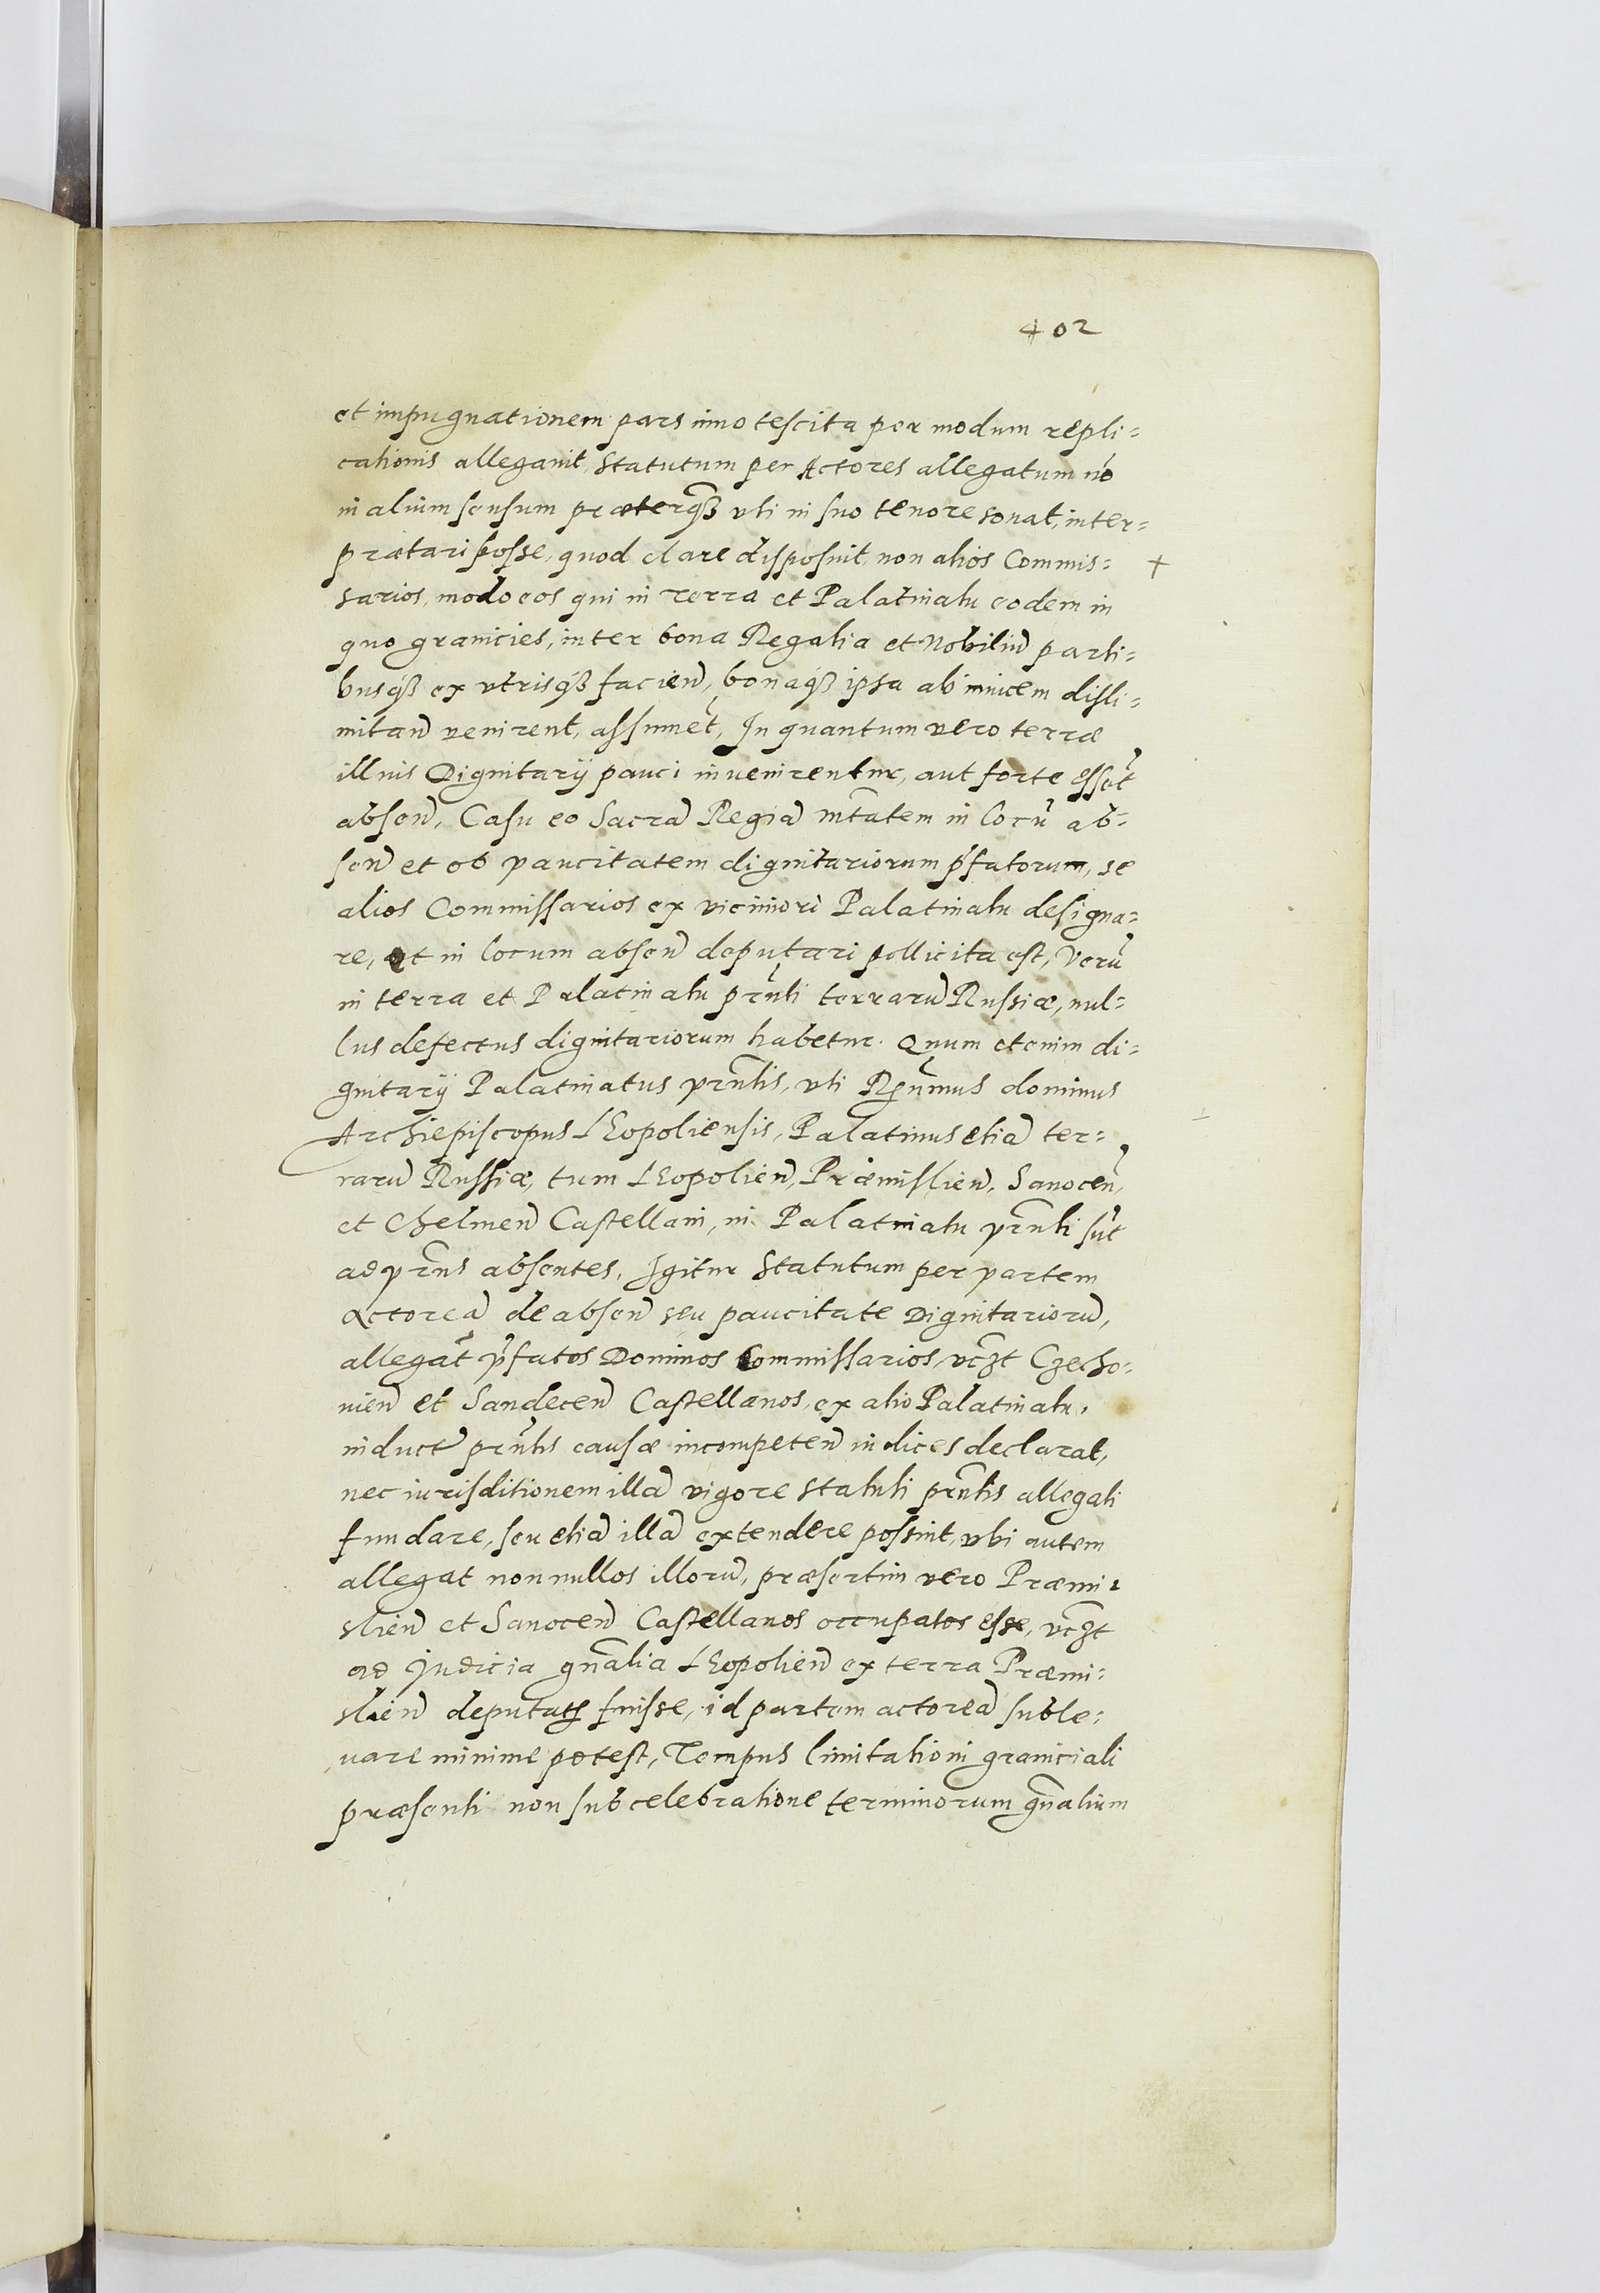 402
et impugnationem pars innotescita per modum repli=
cationis allegavit, Statutum per Actores allegatum nō
in alium sensum præterq̄ȝ vti in suo tenore sonat, inter=
prætari posse, quod clare disposuit, non alios Commis= +
sarios, modo eos qui in terra et Palatinatu eodem in
quo granicies, inter bona Regalia et Nobiliū parti=
busqȝ ex vtrisqȝ facień, bonaqȝ ipsa ab invicem disli=
mitań venirent, assumēt, In quantum vero terræ
illius Dignitarij pauci invenirentur, aut forte essēt
absen̄, Casu eo Sacrā Regiā Mt̄atem in locū ab=
sen̄ et ob paucitatem dignitariorum p̄fatorum, se
alios Commissarios ex viciniori Palatinatu designa=
re, et in locum absen̄ deputari pollicita est, Verū
in terra et Palatinatu prn̄ti terrarū Russiæ, nul=
lus defectus dignitariorum habetur. Quum etenim di=
gnitarij Palatinatus prn̄tis, vti Rn̄mus dominus
Archiepiscopus LEopoliensis, Palatinus etiā ter=
rarū Russiæ, tum LEopolień, Præmislień, Sanoceń,
et Chelmeń Castellani, in Palatinatu prn̄ti sūt
ad prn̄s absentes, Igitur Statutum per partem
Actoreā de absen̄ seu paucitate Dignitariorū,
allegāt p̄fatos Dominos Commissarios, vcȝt Czecho=
vień et Sandeceń Castellanos, ex alio Palatinatu,
induct̄ prn̄tis causæ incompeteń iudices declarat,
nec iurisditionem illā vigore statuti prn̄tis allegati
fundare, seu etiā illā extendere possint, vbi autem
allegat nonnullos illorū, præsertim vero Præmi=
slień et Sanoceń Castellanos occupatos esse, vcȝt
ad Judicia gn̄alia LEopolień ex terra Præmi=
slień deputatos fuisse, id partem actoreā suble=
vare minime potest, Tempus limitationi graniciali
præsenti non sub celebratione terminorum gn̄alium